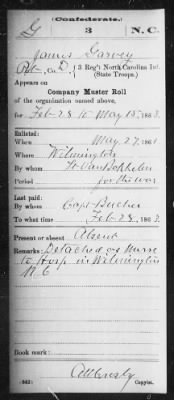 (Confederate.)
G 3 N.C.
James Garvey
Pvt, Co. D, 3 Reg't North Carolina Inf.
(State Troops.)
Appears on
Company Muster Roll
of the organization named above,
for Feb 28 to May 15, 1863.
Enlisted:
When May 27, 1861
Where Wilmington
By whom
Period for the war
Last paid:
By whom Capt
To what time Feb 28, 1863.
Present or absent Absent
Remarks: Detached as Nurse
to Hosp in Wilmington
N.C
Book mark:
(642)
Copyist.